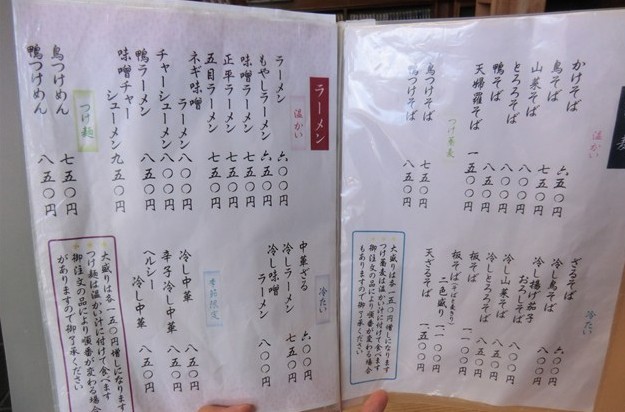 麦
温かい
かけそば 六〇〇円
鳥そば 六五〇円
山菜そば 七五〇円
とろろそば 八〇〇円
鴨そば 八五〇円
天婦羅そば 一五〇〇円
つけ蕎麦
鳥つけそば 七五〇円
鴨つけそば 八五〇円
冷たい
ざるそば 六〇〇円
冷し鳥そば
冷し揚げ茄子
おろしそば 八〇〇円
冷し山菜そば 八五〇円
冷しとろろそば 八五〇円
板そば 一一〇〇円
板そば
二色盛り 一一〇〇円
天ざるそば 一五〇〇円
大盛りは各一五〇円増しになります
つけ蕎麦は温かい汁に付けて食べます
御注文の品により順番が変わる場合
もありますので御了承ください
ラーメン
温かい
ラーメン 六〇〇円
もやしラーメン 六五〇円
味噌ラーメン 七五〇円
正平ラーメン 七五〇円
五目ラーメン 七五〇円
ネギ味噌
ラーメン 八〇〇円
チャーシューメン 八〇〇円
鴨ラーメン 八五〇円
味噌チャー
シューメン 九五〇円
つけ麺
鳥つけめん 七五〇円
鴨つけめん 八五〇円
冷たい
中華ざる 六〇〇円
冷しラーメン 七五〇円
冷し味噌
ラーメン 八〇〇円
季節限定
冷し中華 八五〇円
辛子冷し中華 八五〇円
ヘルシー
冷し中華 八五〇円
大盛りは各一五〇円増しになります
つけ麺は温かい汁に付けて食べます
御注文の品により順番が変わる場合
がありますので御了承ください